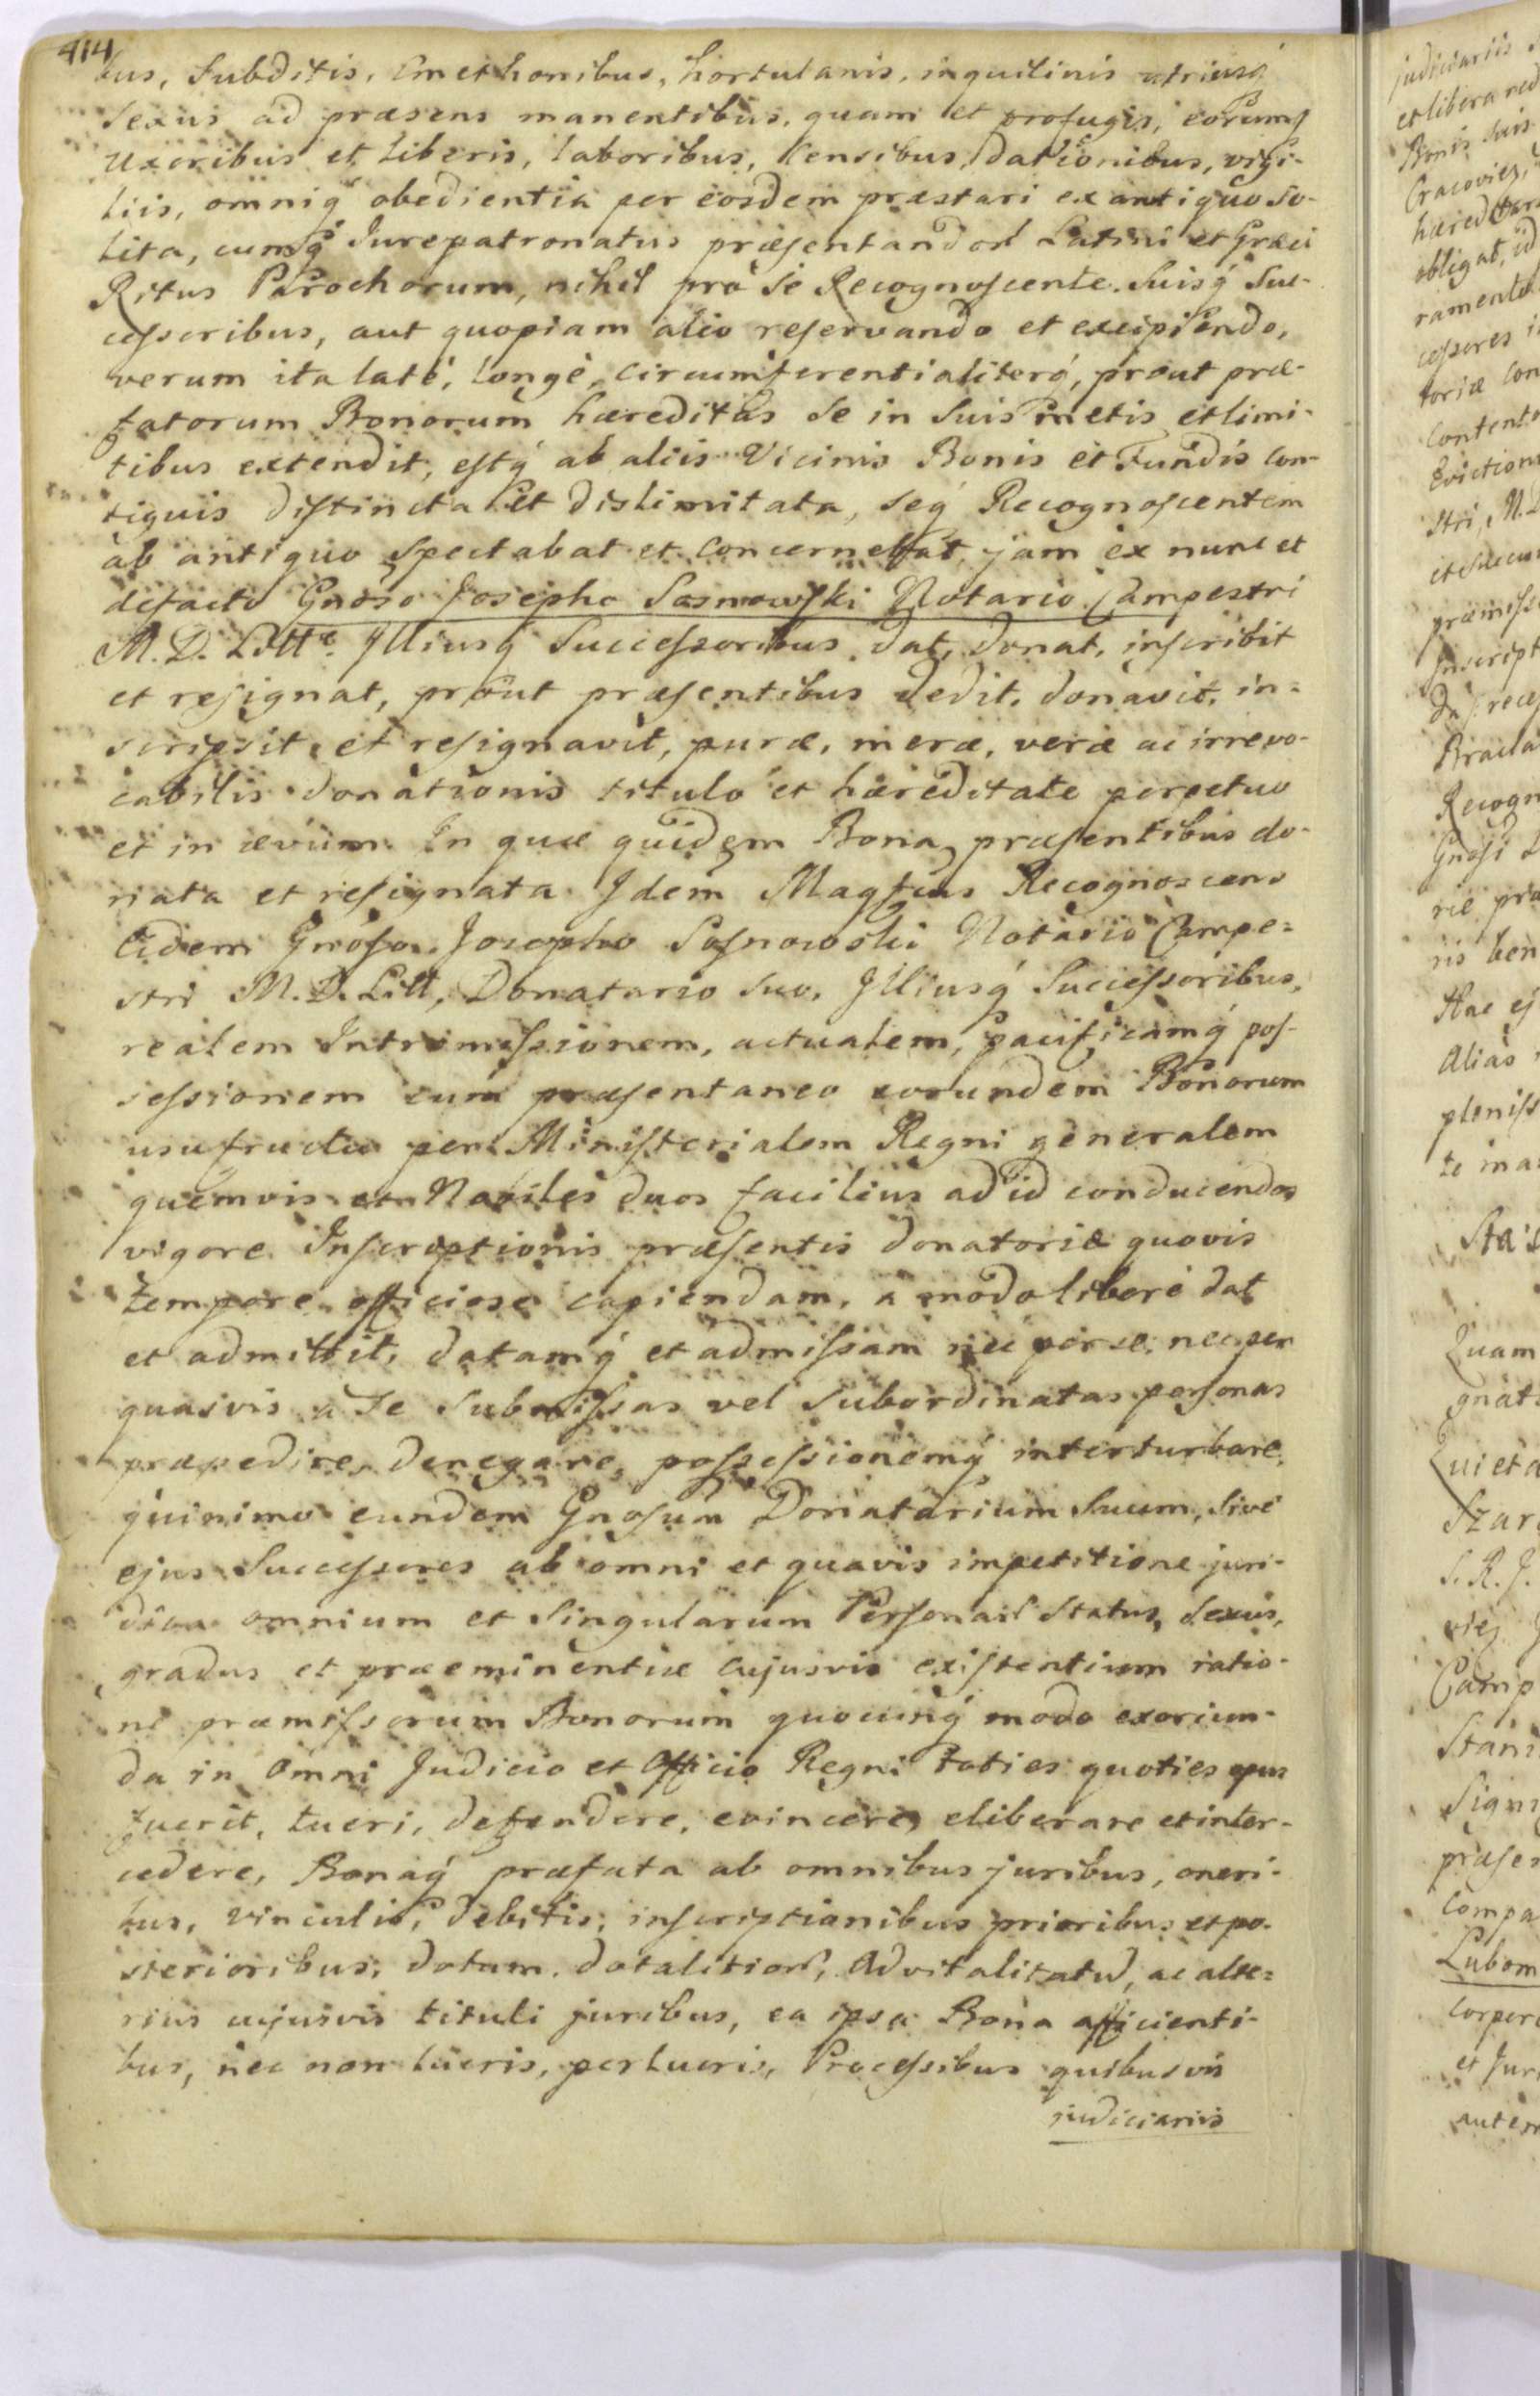 414
bus, Subditis, Cmethonibus, hortulanis, inquilinis utriusq́
Sexus ad præsens manentibus, quam et profugis, eorumq́
Uxoribus et Liberis, laboribus, Censibus, dationibus, vigi-
liis, omniq́ obedientia per eosdem præstari ex antiquo so-
lita, cumq́ Jurepatronatus præsentandor Latini et Græci
Ritus Parochorum, nihil pro se Recognoscente Suisq́ Suc-
cessoribus, aut quopiam alio reservando et excipiendo,
verum ita laté, longè, circumferentialiteró, prout præ-
fatorum Bonorum hæreditas se in Suis metis et limi-
tibus extendit, estq́ ab aliis Vicinis Bonis et Fundis con-
tiguis distincta et dislimitata, seq́ Recognoscentem
ab antiquo spectabat et concernebat, jam ex nunc et
defacto Gnoso Josepho Sosnowski Notario Campestri
M. D. Litt. Illiusq́ Successoribus dat, donat, inscribit
et resignat, prout præsentibus dedit, donavit, in-
scripsit, et resignavit, puræ, meræ, veræ ac irrevo-
cabilis donationis titulo et hæreditate perpetuo
et in ævum. In quæ quidem Bona, præsentibus do-
nata et resignata Idem Magfcus Recognoscens
Eidem Gnoso Josepho Sosnowski Notario Campe=
stri M. D. Litt, Donatario suo, Illiusq́ Successoribus,
realem Intromissionem, actualem, pacificamq́ pos-
sessionem cum præsentaneo eorundem Bonorum
usufructu per Ministerialem Regni generalem
quemvis et Nobiles duos facilius ad id conducendos
vigore Inscriptionis præsentis donatoriæ quovis
tempore officiose capiendam, a modo liberè dat
et admittit, datamq́ et admissam nec per se, nec per
quasvis a Se Submissas vel Subordinatas personas
præpedire, denegare, possessionemq́ interturbare,
quinimo eundem Gnosum Donatarium Suum, Sive
ejus Successores ab omni et quavis impetitione juri-
dica omnium et Singularum Personar status, sexus,
gradus et præeminentiæ cujusvis existentium ratio-
ne præmissorum Bonorum quocunq́ modo exoriun-
da in Omni Judicio et Officio Regni toties quoties opus
fuerit, tueri, defendere, evincere, eliberare et inter-
cedere, Bonaq́ præfata ab omnibus juribus, oneri-
bus, vinculis, debitis, inscriptionibus prioribus et po-
sterioribus, dotum, dotalition, Advitalitatu, ac alte=
rius cujusvis tituli juribus, ea ipsa Bona afficienti-
bus, nec non lucris, perlucris, Processibus quibusvis
judiciariis